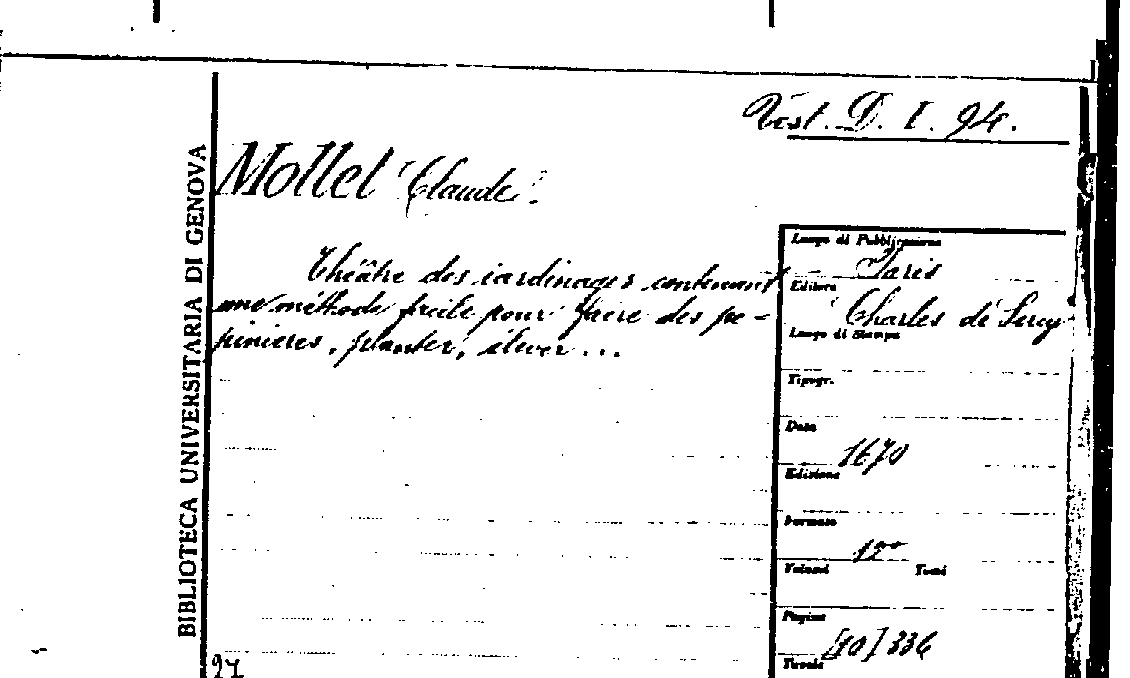 Vest. D. I. 94.
BIBLIOTECA UNIVERSITARIA DI GENOVA
Mollet Claude.
Théâtre des iardinages contenant
une méthode facile pour faire des pe-
pinieres, planter, élever...
Luogo di Pubblicazione
Paris
Editore
Charles de Sercy
Luogo di Stampa
Tipogr.
Data
1670
Edizione
Formato
12º
Volumi Tomi
Pagine
[10] 336
Tavole